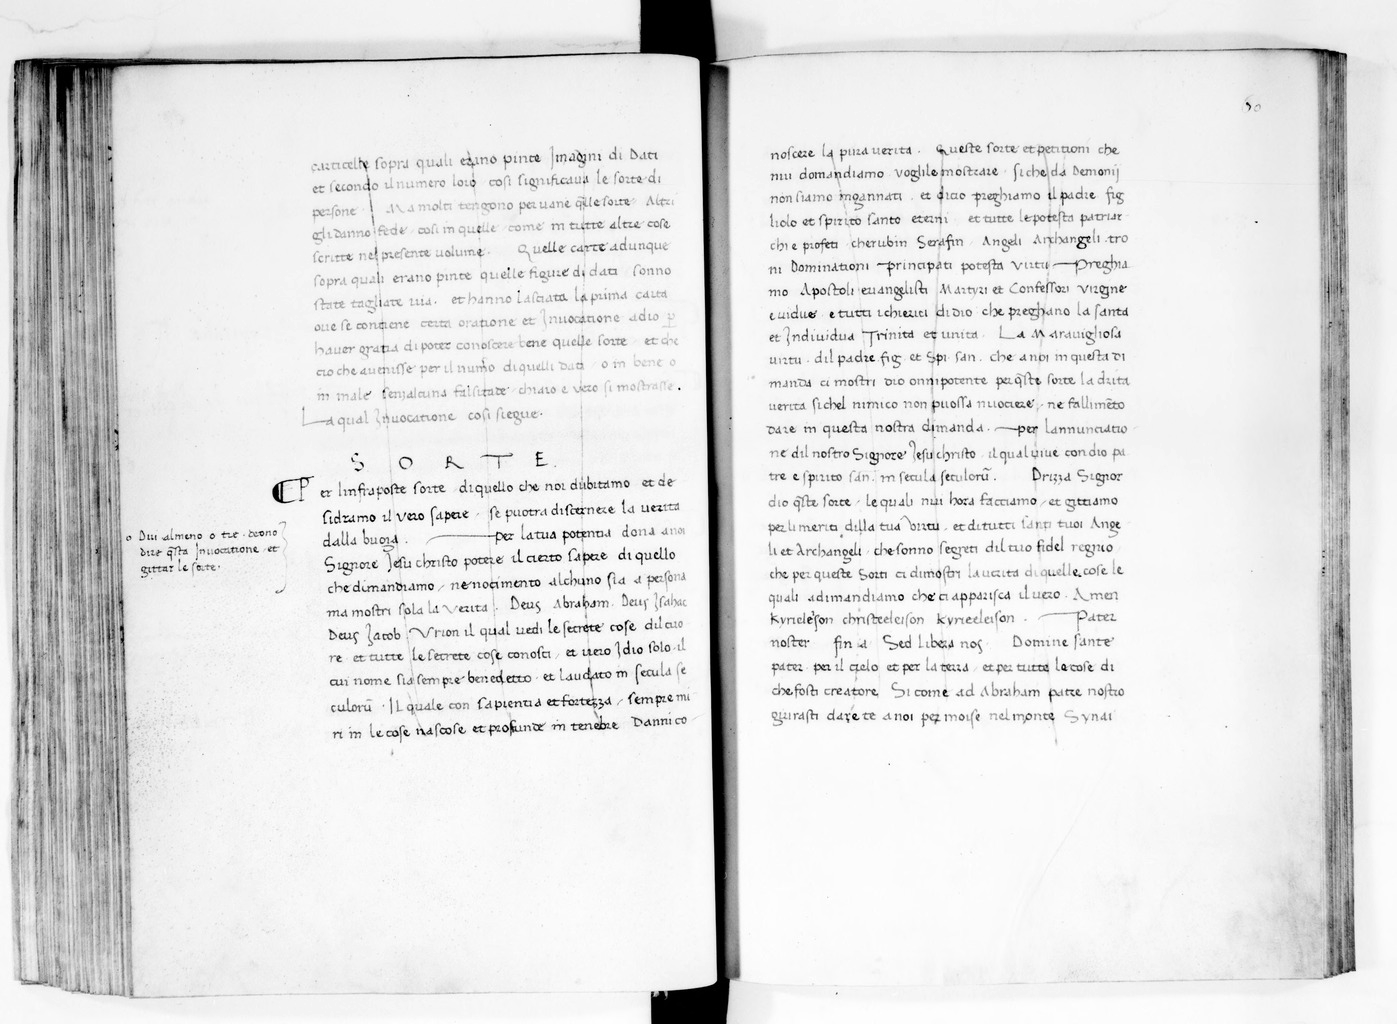 carticelle sopra quali erano pinte Imagini di Dati
et secondo il numero loro cosi significaua le sorte di
persone . Ma molti tengono per uane q̃lle sorte Altri
gli danno fede cosi in quelle come in tutte altre cose
scritte nel presente uolume . Quelle carte adunque
sopra quali erano pinte quelle figure di dati sonno
state tagliate uia . et hanno lasciata la prima carta
oue se contiene certa oratione et Inuocatione adio p̱
hauer gratia di poter conoscere bene quelle sorte et che
cio che auenisse per il num̃o di quelli dati o in bene o
in male senz alcuna falsitade chiaro e vero si mostrasse .
La qual Inuocatione cosi siegue .
S O R T E .
Per linfraposte sorte di quello che noi dubitamo et de
sidramo il vero sapere se puotra discernere la uerita
dalla bugia . Per la tua potentia dona anoi
Signore Jesu christo potere il cierto sapere di quello
che dimandiamo ne nocimento alchuno sia a persona
ma mostri sola la Verita . Deus Abraham . Deus Isahac
Deus Jacob Vrion il qual uedi le secrete cose dil cuo
re et tutte le secrete cose conosci et uero Idio solo il
cui nome sia sempre benedetto et laudato in secula se
culorũ . IL quale con sapientia et fortezza sempre mi
ri in le cose nascose et profunde in tenebre Danni co
o Dui almeno o tre deono
dire q̃sta Inuocatione et
gittar le sorte .
60
noscere la pura uerita . Queste sorte et petitioni che
nui domandiamo voglile mostrare si che da Demonij
non siamo ingannati . et dicio preghiamo il padre fig
liolo et spirito santo eterni et tutte le potesta patriar
chi e profeti cherubin Serafin Angeli Archangeli tro
ni Dominationi Principati potesta virtu Preghia
mo Apostoli euangelisti Martyri et Confessori virgine
e uidue e tutti i chierici di dio che preghano la santa
et Indiuidua Trinita et unita . La Marauigliosa
virtu dil padre fig . et Spi . san . che a noi in questa di
manda ci mostri dio onnipotente per q̃ste sorte la drita
verita si chel nimico non puossa nuociere ne fallimẽto
dare in questa nostra dimanda . Per lannunciatio
ne dil nostro Signore Jesu christo il qual uiue con dio pa
tre e spirito san . in secula seculorũ . Drizza Signor
dio q̃ste sorte le quali nui hora facciamo et gittiamo
per li meriti dilla tua Virtu et di tutti santi tuoi Ange
li et Archangeli che sonno segreti dil tuo fidel regnio
che per queste Sorti ci dimostri la uerita di quelle cose le
quali adimandiamo che ci apparisca il uero . Amen
Kyrieleson christeeleison kyrieeleison . Pater
noster fin a Sed Libera nos Domine sante
pater per il cielo et per la terra et per tutte le cose di
che fosti creatore Si come ad Abraham patre nostro
giurasti dare te a noi per moise nel monte Synai